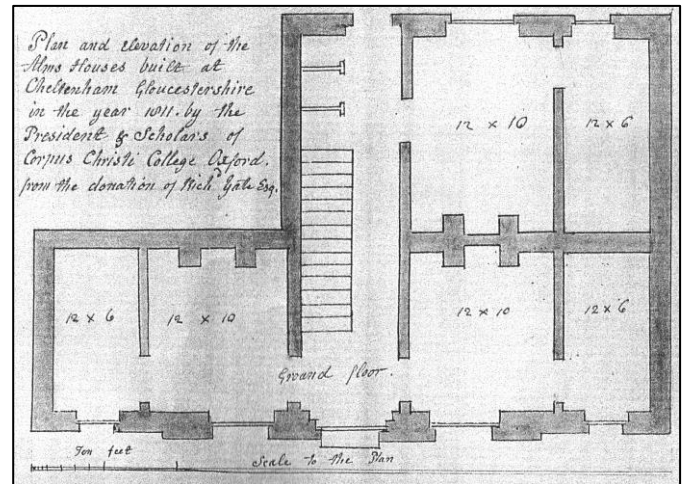 Plan and elevation of the
Alms Houses built at
Cheltenham Gloucestershire
in the year 1811. by the
President & Scholars of
Corpus Christi College Oxford.
from the donation of Richd. Gate Esq.
12 x 10
12 x 6
12 x 6
12 x 10
12 x 10
12 x 6
Ground floor.
Ten feet
Scale to the Plan